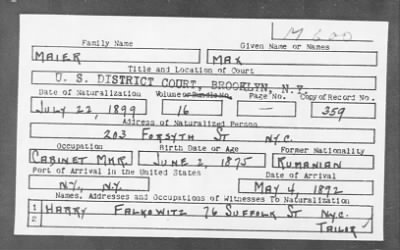 M600
Family Name Given Name or Names
MAIER MAX
Title and Location of Court
U. S. DISTRICT COURT, BROOKLYN, N.Y.
Date of Naturalization Volume or Bundle No. Page No. Copy of Record No.
JULY 22, 1899 16 — 359
Address of Naturalized Person
203 FORSYTH ST N.Y.C.
Occupation Birth Date or Age Former Nationality
CABINET MKR. JUNE 2, 1875 RUMANIAN
Port of Arrival in the United States Date of Arrival
N.Y., N.Y. MAY 4, 1892
Names, Addresses and Occupations of Witnesses To Naturalization
1 HARRY FALKOWITZ 76 SUFFOLK ST N.Y.C.
2 TAILOR